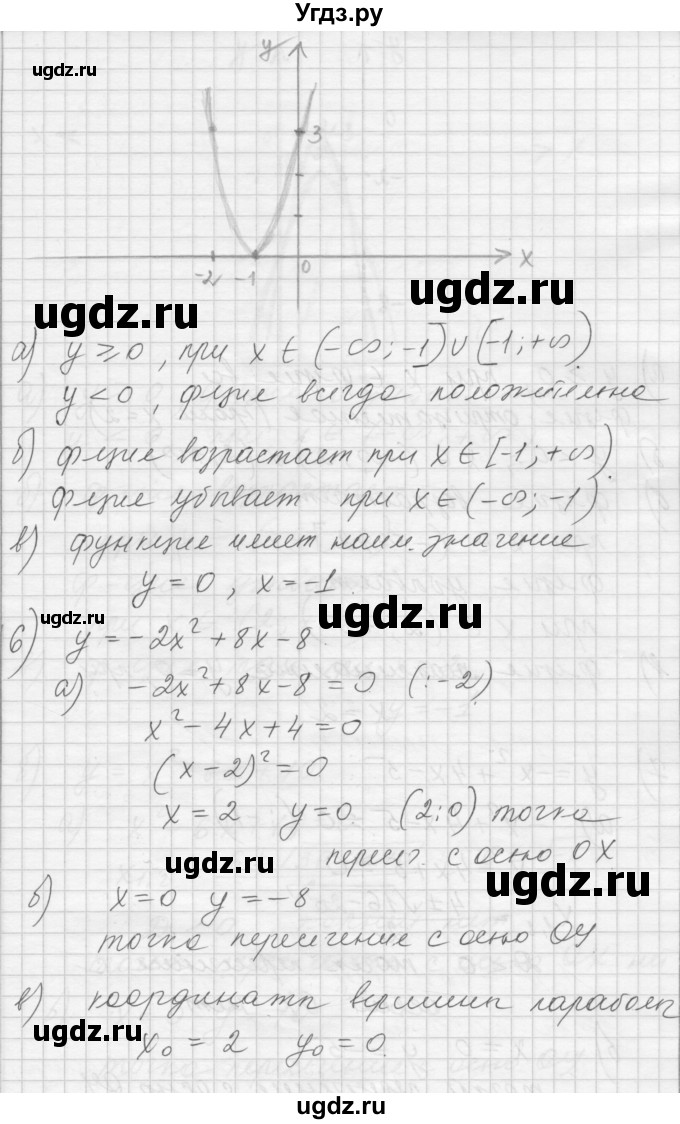 Угдз.ру
ugdz.ru
y
3
-2 -1 0 x
ugdz.ru
ugdz.ru
а) y ⩾ 0, при x ∈ (-∞; -1] ∪ [-1; +∞)
y < 0, фция всегда положительна
ugdz.ru
б) фция возрастает при x ∈ [-1; +∞)
фция убывает при x ∈ (-∞; -1)
в) функция имеет наим. значение
y = 0, x = -1
ugdz.ru
ugdz.ru
6) y = -2x² + 8x - 8
а) -2x² + 8x - 8 = 0 (: -2)
x² - 4x + 4 = 0
(x - 2)² = 0
x = 2 y = 0. (2; 0) точка
пересеч. с осью OX
ugdz.ru
ugdz.ru
б) x = 0 y = -8
точка пересечения с осью OY
в) координаты вершины параболы
ugdz.ru
ugdz.ru
x₀ = 2 y₀ = 0.
ugdz.ru